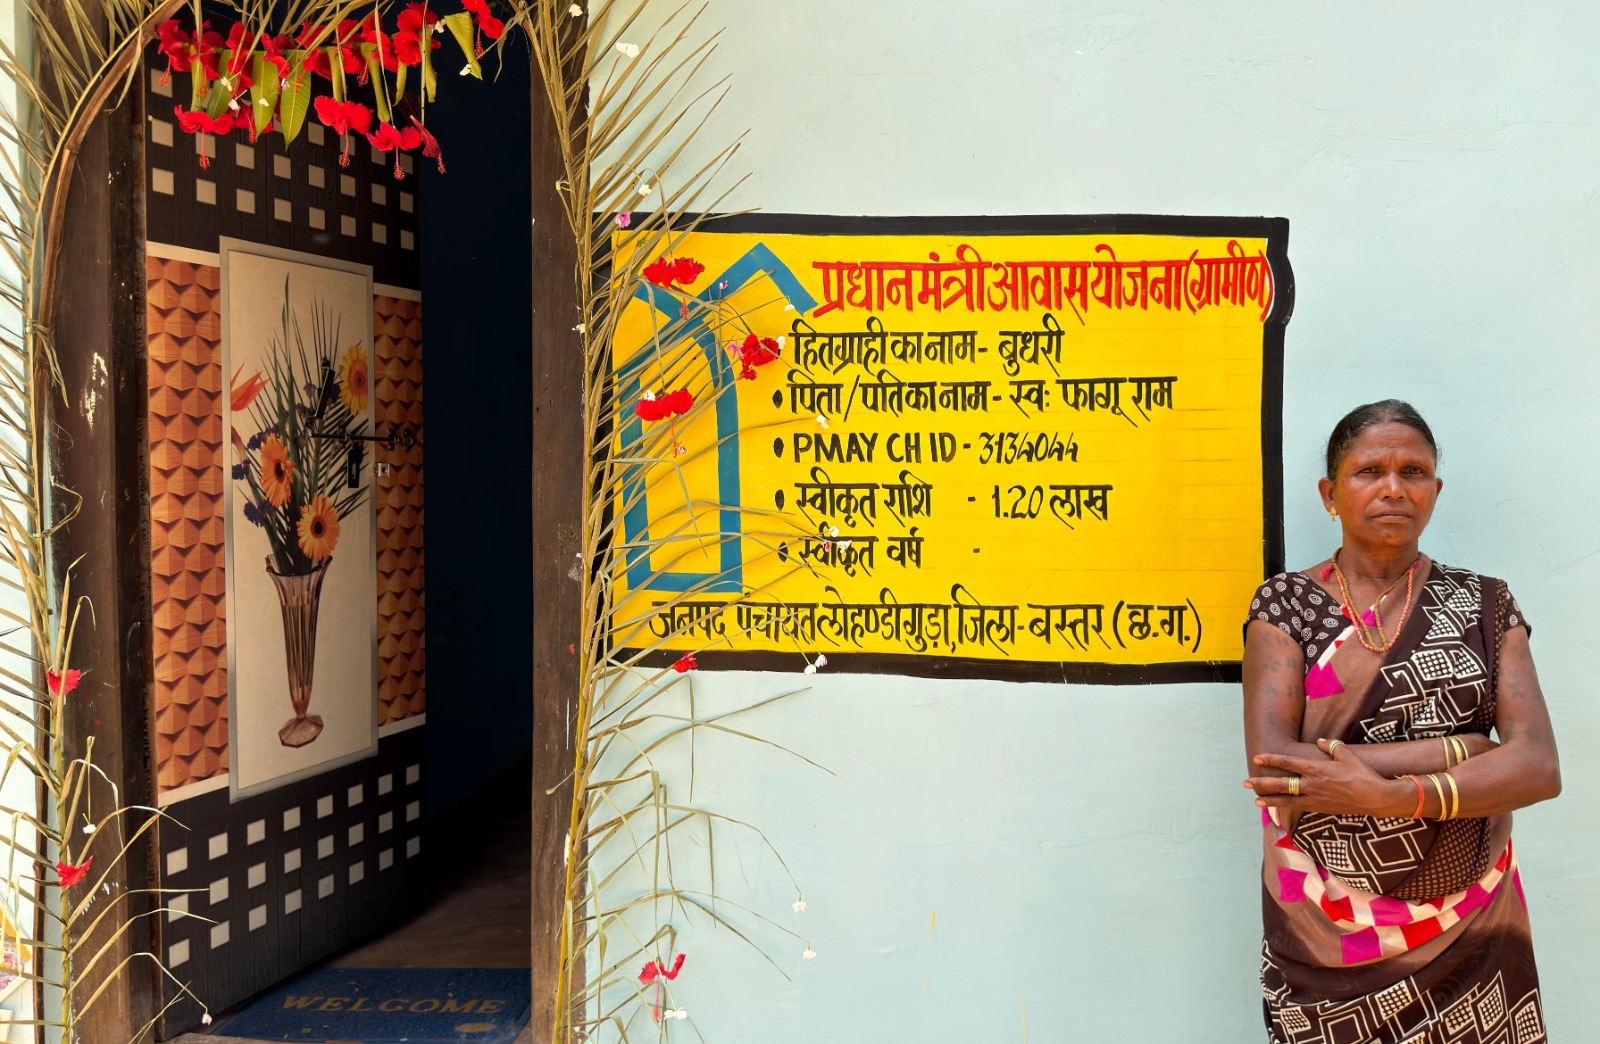 प्रधानमंत्री आवास योजना (ग्रामीण)
• हितग्राही का नाम - बुधरी
• पिता/पति का नाम - स्वः फागू राम
• PMAY CH ID - 3134044
• स्वीकृत राशि - 1.20 लाख
• स्वीकृत वर्ष -
जनपद पंचायत लोहण्डीगुड़ा, जिला - बस्तर (छ.ग.)
WELCOME